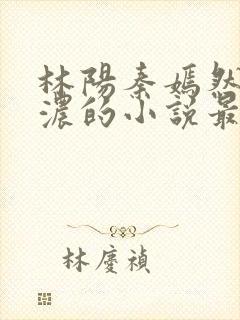 林陽秦嫣然
濃的小說最
林慶禎